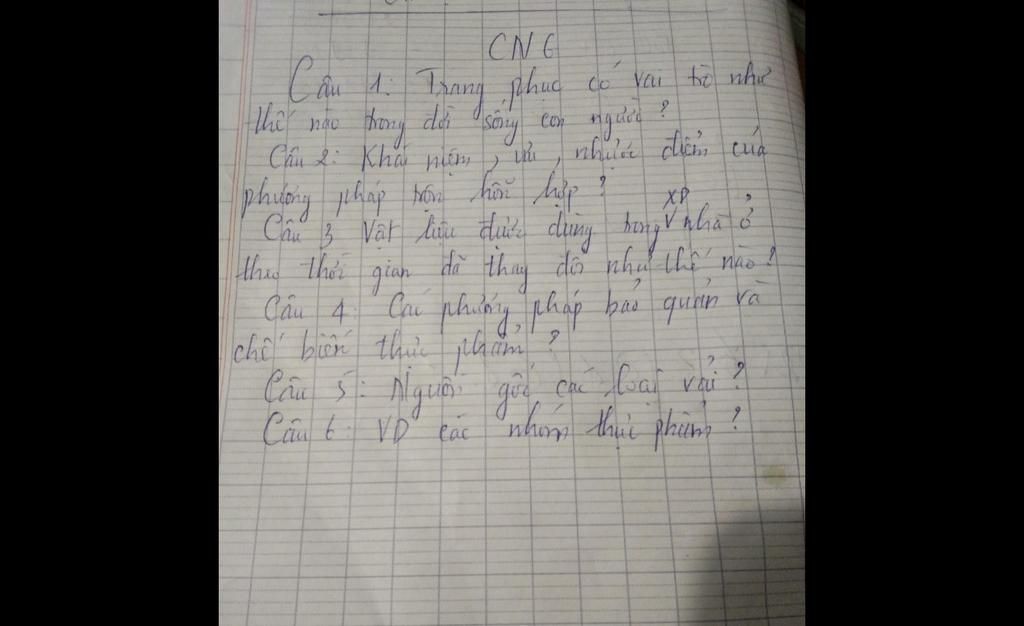 CN 6
Câu 1: Trang phục có vai trò như
thế nào trong đời sống con người ?
Câu 2: Khái niệm, ưu, nhược điểm của
phương pháp trộn hỗn hợp ?
XD
Câu 3 Vật liệu được dùng trong V nhà ở
theo thời gian đã thay đổi như thế nào?
Câu 4: Các phương pháp bảo quản và
chế biến thực phẩm ?
Câu 5: Nguồn gốc các loại vải ?
Câu 6: VD các nhóm thực phẩm ?